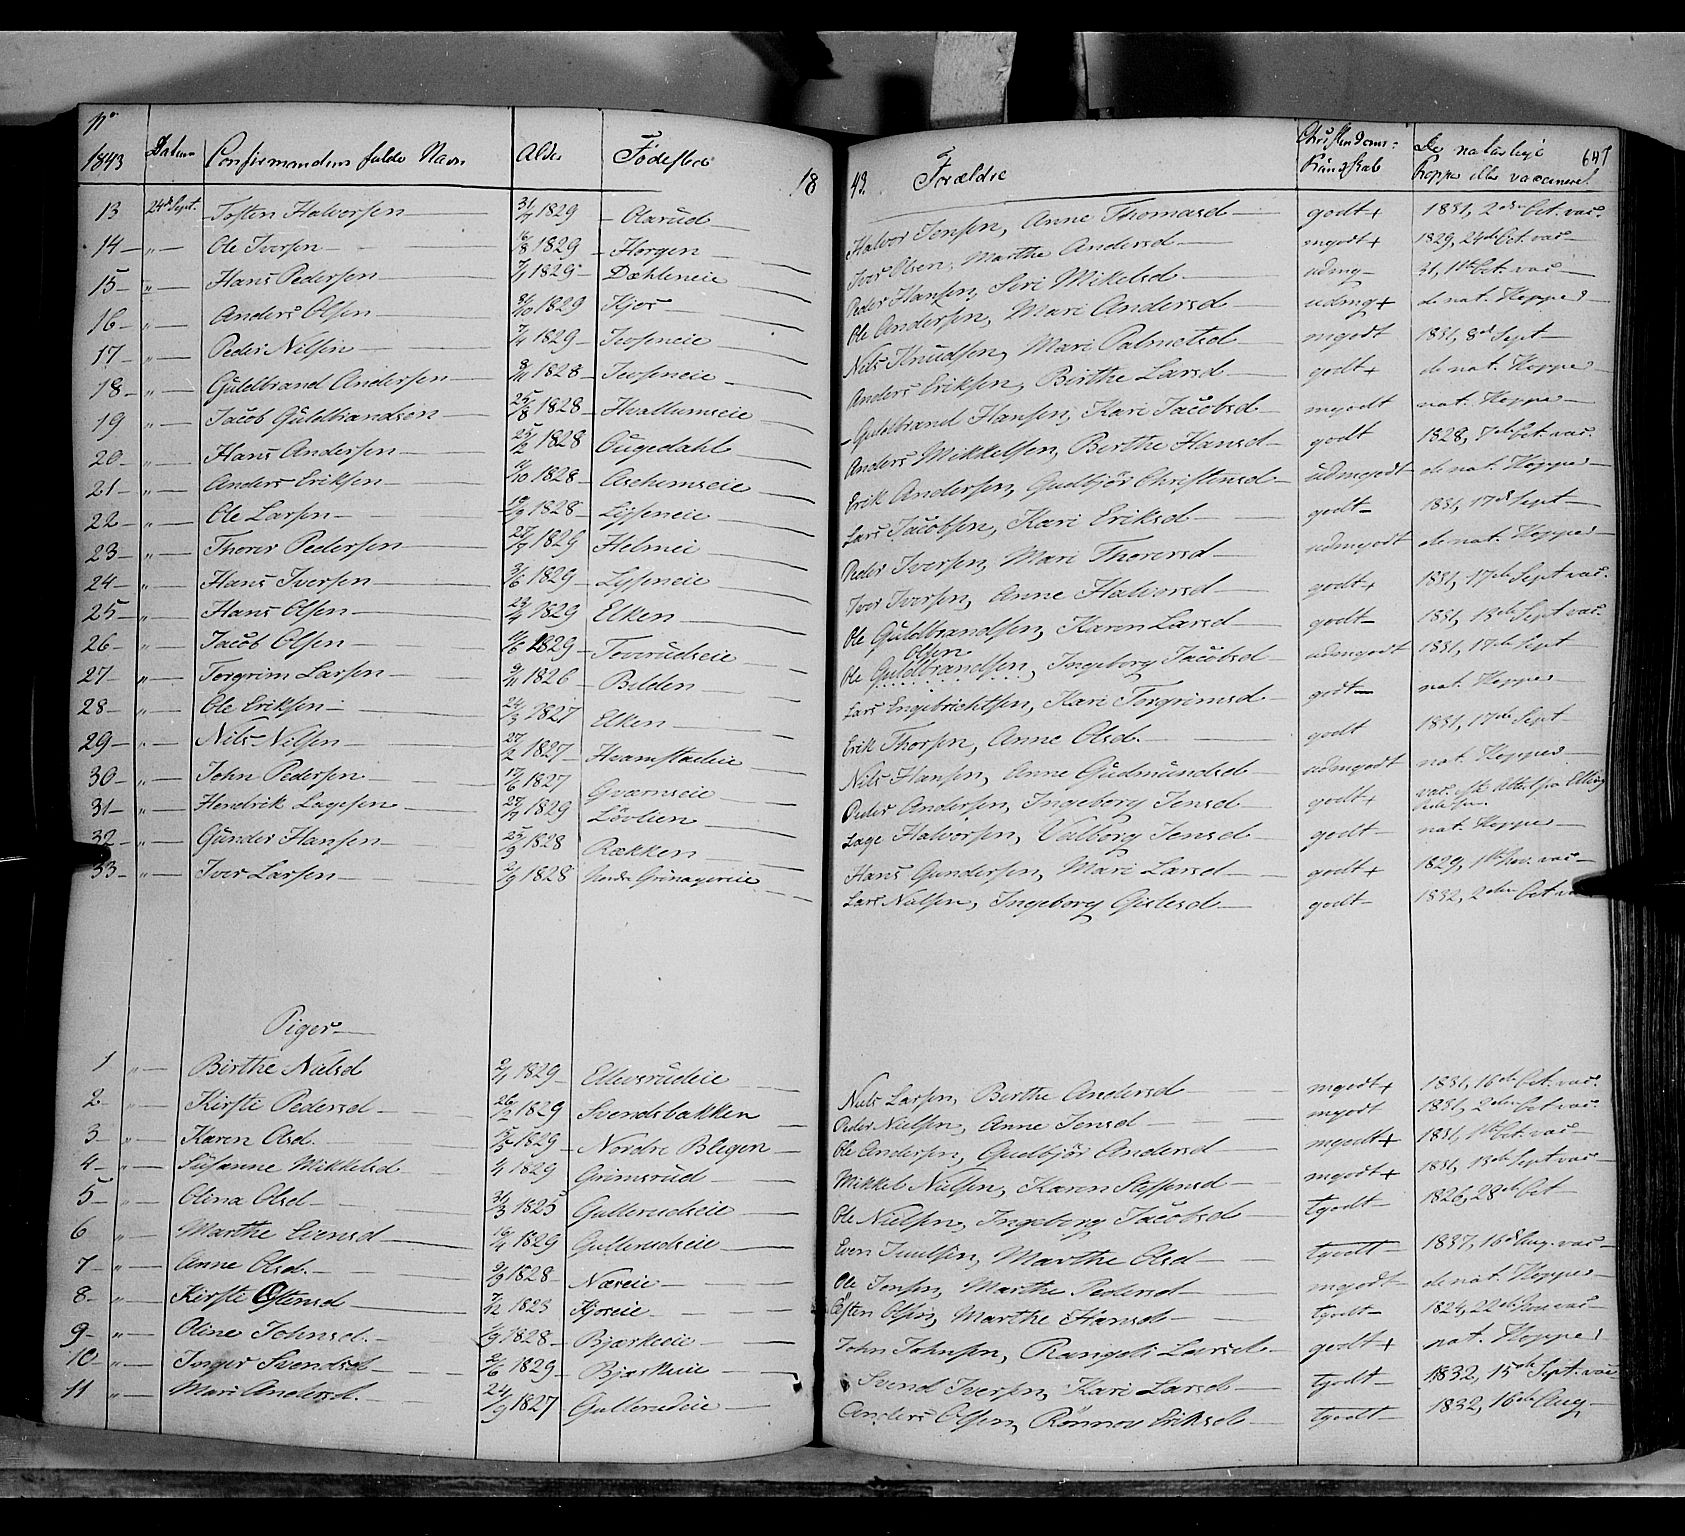 No 1843 Datum Confirmandens fulde Navn Alder Fødested 18 43. Forældre Christendoms-Kundskab De naturlige Kopper eller vaccineret 647
13 24de Sept. Tosten Halvorsen 31/7 1829 Aarud Halvor Jensen, Anne Thomasd godt+ 1831, 2den Oct. vac.
14 " Ole Iversen 16/8 1829 Horgen Iver Olsen, Marthe Andersd mgodt+ 1829, 24de Oct. vac
15 " Hans Pedersen 1829 Dæhleneie Peder Hansen, Siri Mikelsd udmg 31, 1ste Oct. vac
16 " Anders Olsen 1829 Kjos Ole Andersen, Mari Andersd udmg+ de nat. Kopper
17 " Peder Nilsen 1829 Iverseneie Nils Knudsen, Mari Palmetsd mgodt 1831, 8de Sept
18 " Guldbrand Andersen 1828 Iverseneie Anders Eriksen, Birthe Larsd godt+ de nat. Kopper
19 " Jacob Guldbrandsen 25/8 1828 Hvattumseie Guldbrand Hansen, Kari Jacobsd mgodt nat. Kopper
20 " Hans Andersen 25/2 1828 Augedahl Anders Mikkelsen, Berthe Hansd godt 1828, Oct. vac.
21 " Anders Eriksen 1828 Aschimseie Erik Andersen, Gudbjör Christensd udmgodt de nat. Kopper
22 " Ole Larsen 1828 Lysseneie Lars Jacobsen, Kari Eriksd godt 1831, 17de Sept
23 " Thorer Pedersen 1829 Helmeie Peder Iversen, Mari Thorersd udmgodt de nat. Kopper
24 " Hans Iversen 3/6 1829 Lysseneie Iver Iversen, Anne Halvorsd godt+ 1831, 17de Sept vac.
25 " Hans Olsen 29/4 1829 Elken Ole Guldbrandsen, Karen Larsd godt 1831, 13de Sept vac.
26 " Jacob Olsen 1829 Toverudseie Ole Guldbrandsen Olsen, Ingeborg Jacobsd udmgodt 1831, 17de Sept
27 " Torgrim Larsen 9/11 1826 Bilden Lars Engebrichtsen, Kari Torgrimsd godt nat. Kopper
28 " Ole Eriksen 24/3 1827 Elken Erik Thorsen, Anne Olsd. godt 1831, 17de Sept
29 " Nils Nilsen 27/2 1827 Hvamstadeie Nils Hansen, Anne Gudmundsd udmgodt nat. Kopper
30 " John Pedersen 1827 Gværnseie Peder Andersen, Ingeborg Jensd godt+ vac. eft. Attest fra Elling
31 " Hendrik Lagesen 1829 Lövlien Lage Halvorsen, Valborg Jensd godt nat. Kopper
32 " Gunder Hansen 25/9 1828 Rækken Hans Gundersen, Mari Larsd godt+ 1829, 1ste Nov. vac
33 " Iver Larsen 2/9 1828 Nordre Grinagereie Lars Nielsen, Ingeborg Gislesd godt 1832, 2den Oct
Piger
1 " Birthe Nielsd 2/1 1829 Ellevsrudeie Niels Larsen, Berthe Andersd mgodt+ 1831, 16de Oct. vac.
2 " Kirsti Pedersd 26/2 1829 Svendsbakken Peder Nielsen, Anne Jensd mgodt 1831, 2den Oct vac.
3 " Karen Olsd. 1829 Nordre Blegen Ole Andersen, Gudbjör Andersd mgodt+ 1831, 1ste Oct. vac
4 " Susanne Mikkelsd 1829 Grimsrud Mikkel Nielsen, Karen Steffensd mgodt+ 1831, 13de Sept vac
5 " Olina Olsd 31/3 1825 Gullerudseie Ole Nielsen, Ingeborg Jacobsd tgodt 1826, 28de Oct
6 " Marthe Evensd 16/4 1829 Gullerudseie Even Juulsen, Marthe Olsd tgodt 1837, 16de Aug. vac
7 " Anne Olsd. 1828 Næseie Ole Jensen, Marthe Pedersd mgodt de nat. Kopper
8 " Kirsti Østensd 7/12 1823 Kjoseie Østen Olsen, Marthe Hansd tgodt 1824, 22de Juni vac
9 " Oline Johnsd. 1828 Bjerkeeie John Johnsen, Rangdi Larsd godt+ nat. Kopper
10 " Inger Svendsd 1829 Bjerkeeie Svend Iversen, Kari Larsd tgodt 1832, 15de Sept. vac
11 " Mari Andersd. 24/9 1827 Gullerudeie Anders Olsen, Rönnou Eriksd tgodt 1832, 16de Aug